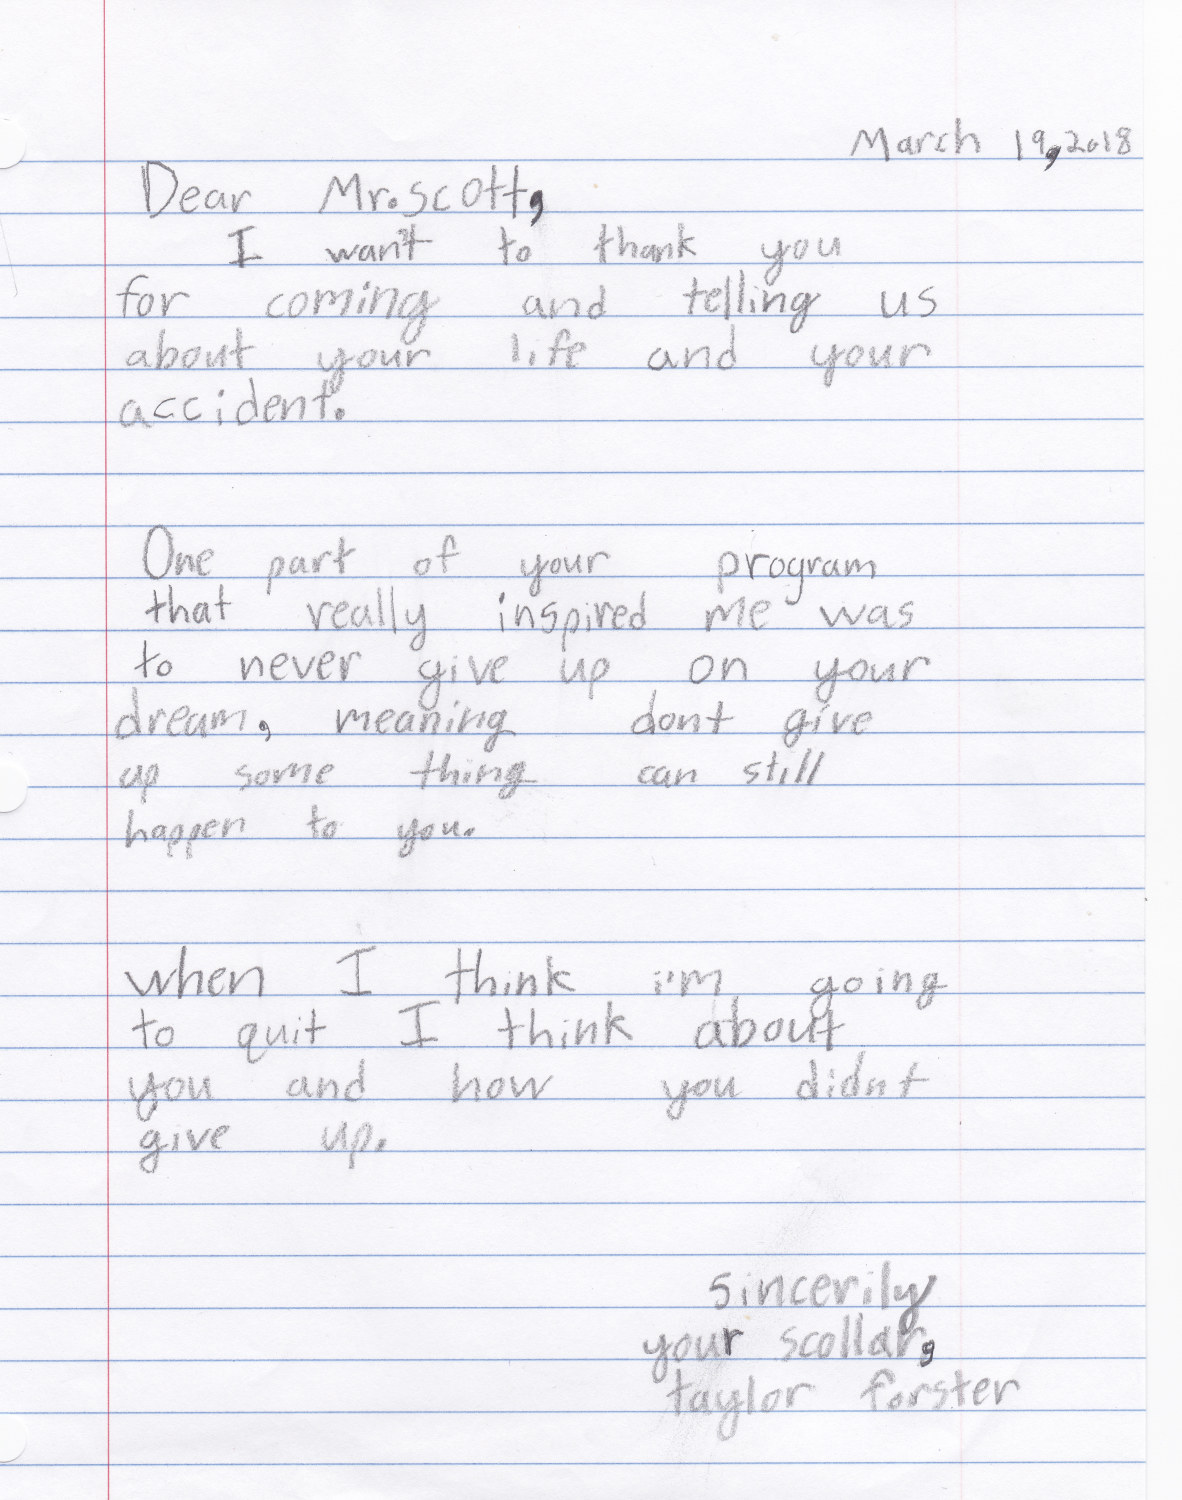 March 19, 2018
Dear Mr. scott,
I want to thank you
for coming and telling us
about your life and your
accident.
One part of your program
that really inspired me was
to never give up on your
dream, meaning dont give
up some thing can still
happen to you.
when I think i'm going
to quit I think about
you and how you didnt
give up.
sincerily
your scollar,
taylor forster